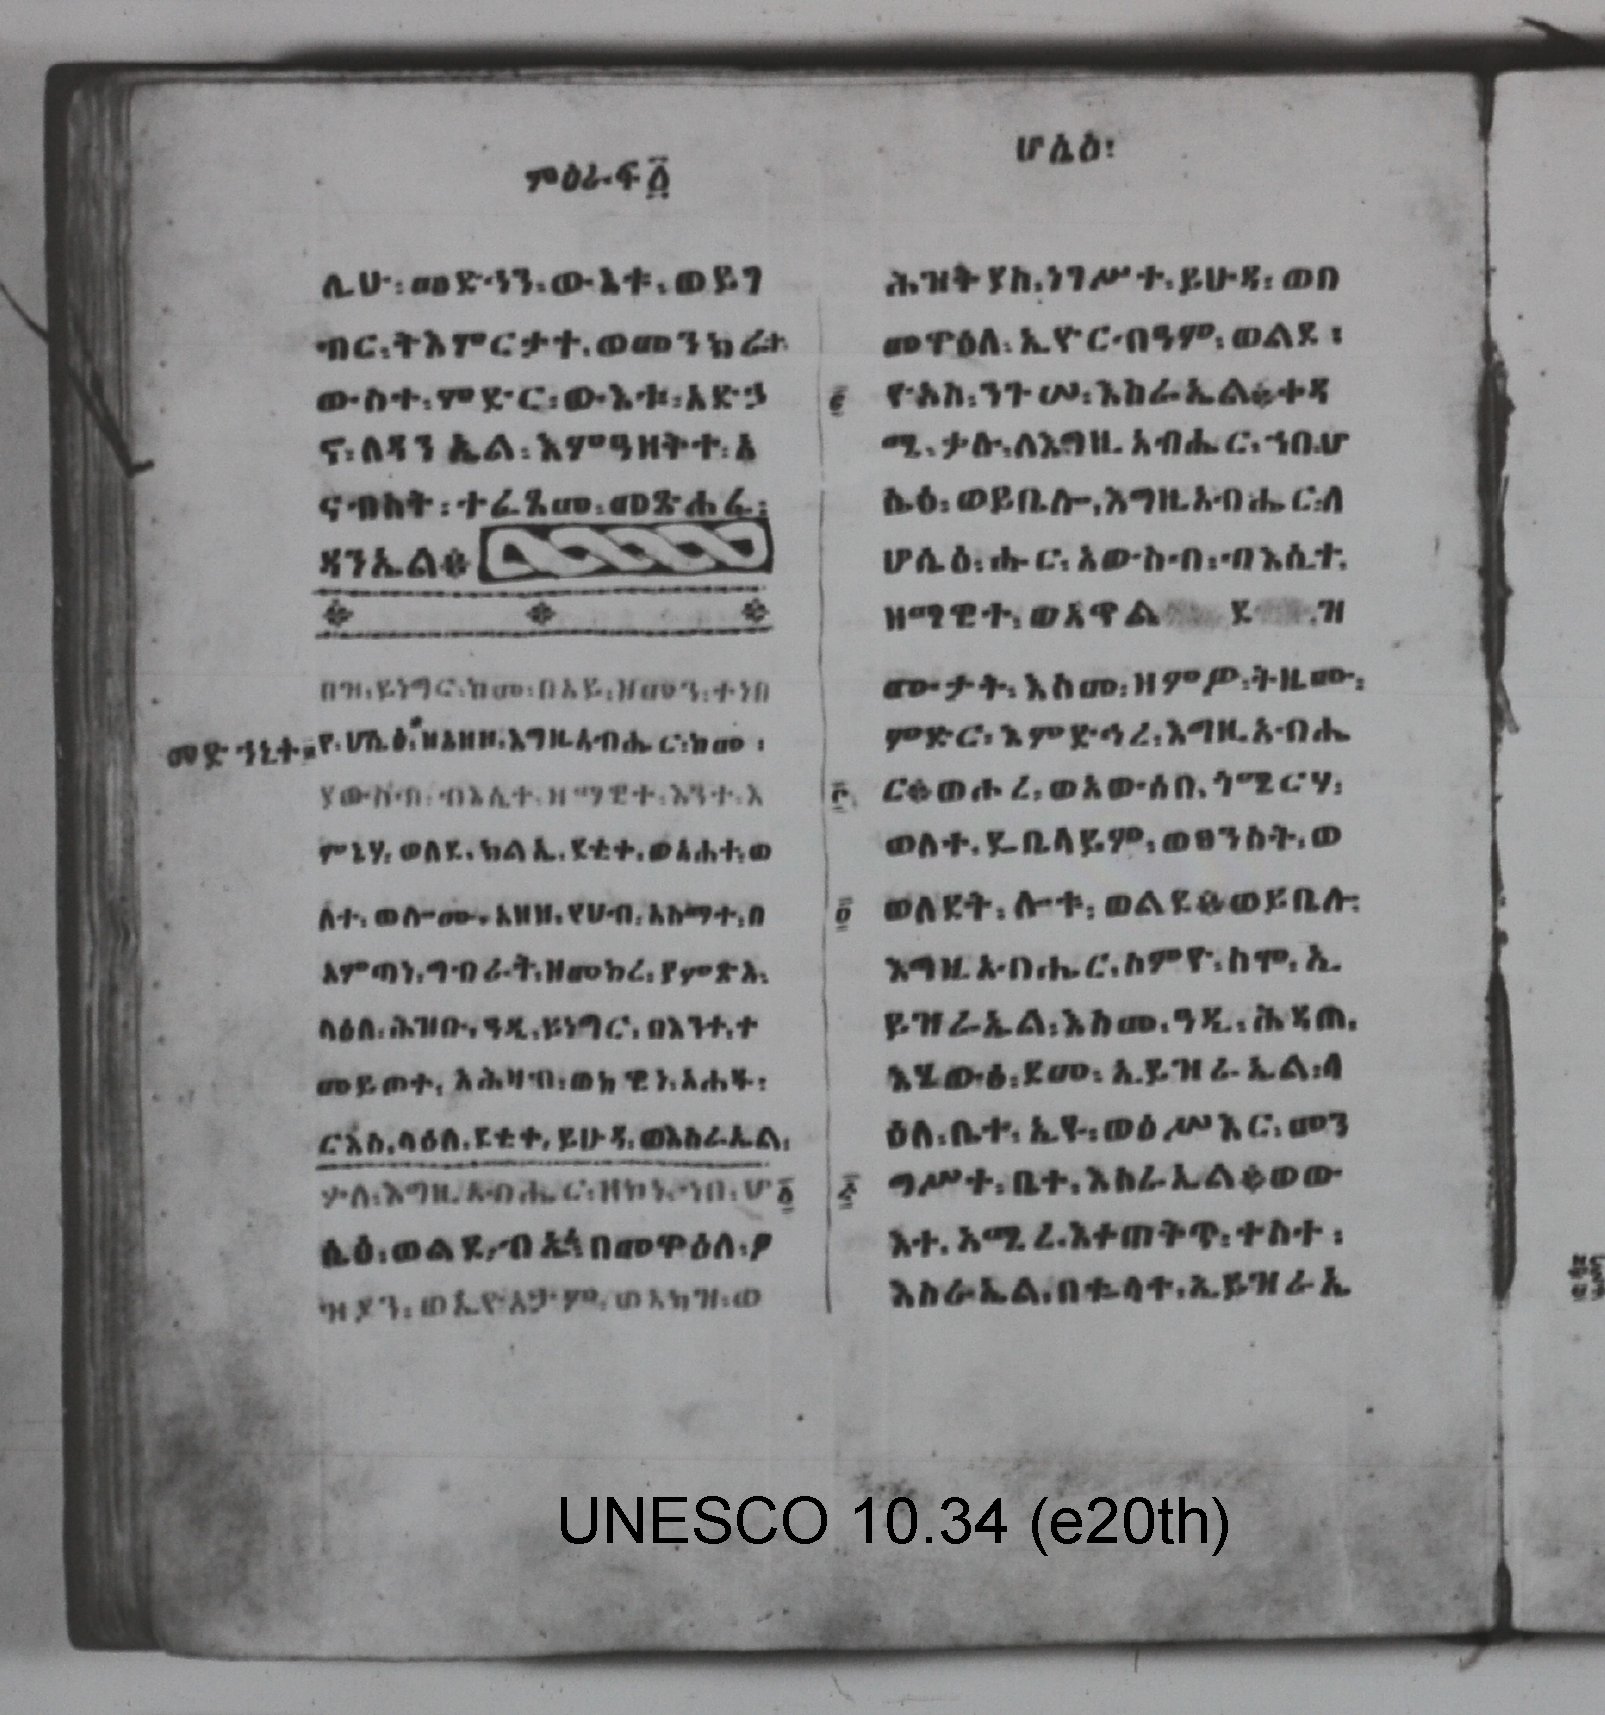 ምዕራፍ ፩
ሊሁ፡ መድኀን፡ ውእቱ፡ ወይገ
ብር፡ ትእምርታተ፡ ወመንክራተ
ውስተ፡ ምድር፡ ውእቱ፡ አድኃ
ኖ፡ ለዳንኤል፡ እምዓዘቅተ፡ አ
ናብስት፡ ተፈጸመ፡ መጽሐፈ፡
ዳንኤል።
በዝ፡ ይነግር፡ ከመ፡ በአይ፡ ዘመን፡ ተነበ
መድኀኒተ፡
የ፡ ሆሴዕ፡ ዘአዘዘ፡ እግዚአብሔር፡ ከመ፡
ያውስብ፡ ብእሲተ፡ ዘማዊተ፡ እንተ፡ እ
ምኔሃ፡ ወለደ፡ ክልኤ፡ ደቂቀ፡ ወአሐተ፡ ወ
ለተ፡ ወሎሙ፡ አዘዘ፡ የሀብ፡ አስማተ፡ በ
አምጣነ፡ ግብራት፡ ዘመከረ፡ ያምጽእ፡
ላዕለ፡ ሕዝቡ፡ ዓዲ፡ ይነግር፡ በእንተ፡ ተ
መይጠተ፡ አሕዛብ፡ ወከዊነ፡ አሐዱ፡
ርእስ፡ ላዕለ፡ ደቂቀ፡ ይሁዳ፡ ወእስራኤል፡
ቃለ፡ እግዚአብሔር፡ ዘኮነ፡ ኀበ፡ ሆ ፩
ሴዕ፡ ወልደ፡ ብኤሪ፡ በመዋዕለ፡ ዖ
ዝያን፡ ወኢዮአታም፡ ወአካዝ፡ ወ
ሆሴዕ፡
ሕዝቅያስ፡ ነገሥተ፡ ይሁዳ፡ ወበ
መዋዕለ፡ ኢዮርብዓም፡ ወልደ፡
፪ ዮአስ፡ ንጉሠ፡ እስራኤል። ቀዳ
ሚ፡ ቃሉ፡ ለእግዚአብሔር፡ ኀበ፡ ሆ
ሴዕ፡ ወይቤሎ፡ እግዚአብሔር፡ ለ
ሆሴዕ፡ ሑር፡ አውስብ፡ ብእሲተ፡
ዘማዊተ፡ ወአጥል
ሙታት፡ እስመ፡ ዘምዎ፡ ትዜሙ፡
ምድር፡ እምድኅረ፡ እግዚአብሔ
፫ ር። ወሖረ፡ ወአውሰበ፡ ጎሜርሃ፡
ወለተ፡ ዴቤላይም፡ ወፀንሰት፡ ወ
፬ ወለደት፡ ሎቱ፡ ወልደ። ወይቤሎ፡
እግዚአብሔር፡ ስምዮ፡ ስሞ፡ ኢ
ይዝራኤል፡ እስመ፡ ዓዲ፡ ሕዳጠ፡
እሄውፅ፡ ደመ፡ ኢይዝራኤል፡ ላ
ዕለ፡ ቤተ፡ ኢዩ፡ ወዕሥእር፡ መን
፭ ግሥተ፡ ቤተ፡ እስራኤል። ወው
እተ፡ አሚረ፡ እቀጠቅጥ፡ ቀስተ፡
እስራኤል፡ በቈላተ፡ ኢይዝራኤ
UNESCO 10.34 (e20th)